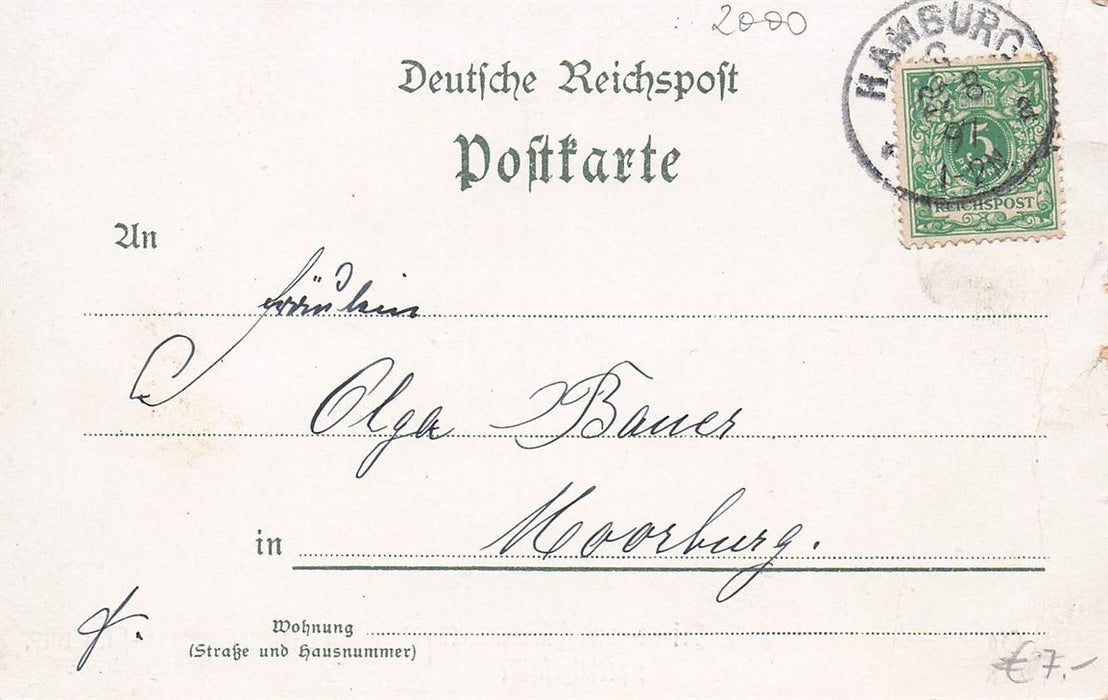 2000
Deutsche Reichspost
Postkarte
HAMBURG
8
97
1-2N
5
PFENNIG
REICHSPOST
An
Fräulein
Olga Bauer
in Moorburg.
Wohnung
(Straße und Hausnummer)
€ 7.-